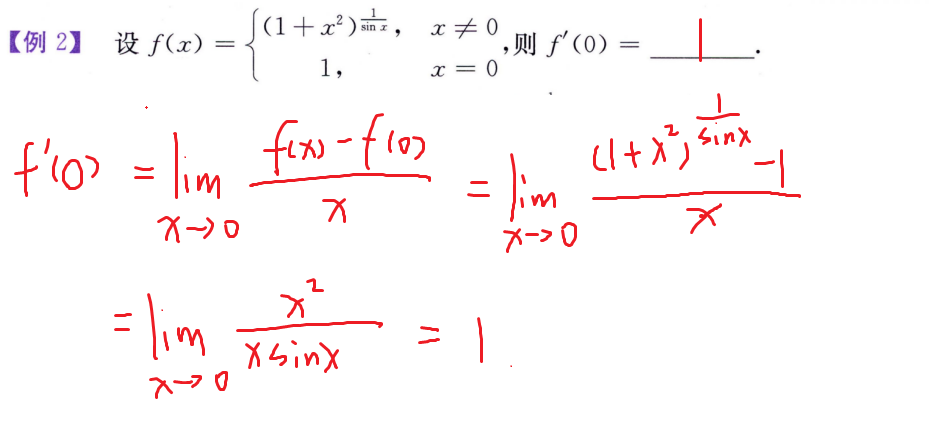 【例 2】 设 f(x) = { (1+x²)^{1/sin x}, x ≠ 0; 1, x = 0 , 则 f′(0) = 1 .
f'(0) = lim_{x→0} (f(x) - f(0))/x = lim_{x→0} ((1+x²)^{1/sinx} - 1)/x
= lim_{x→0} x²/(x sinx) = 1.